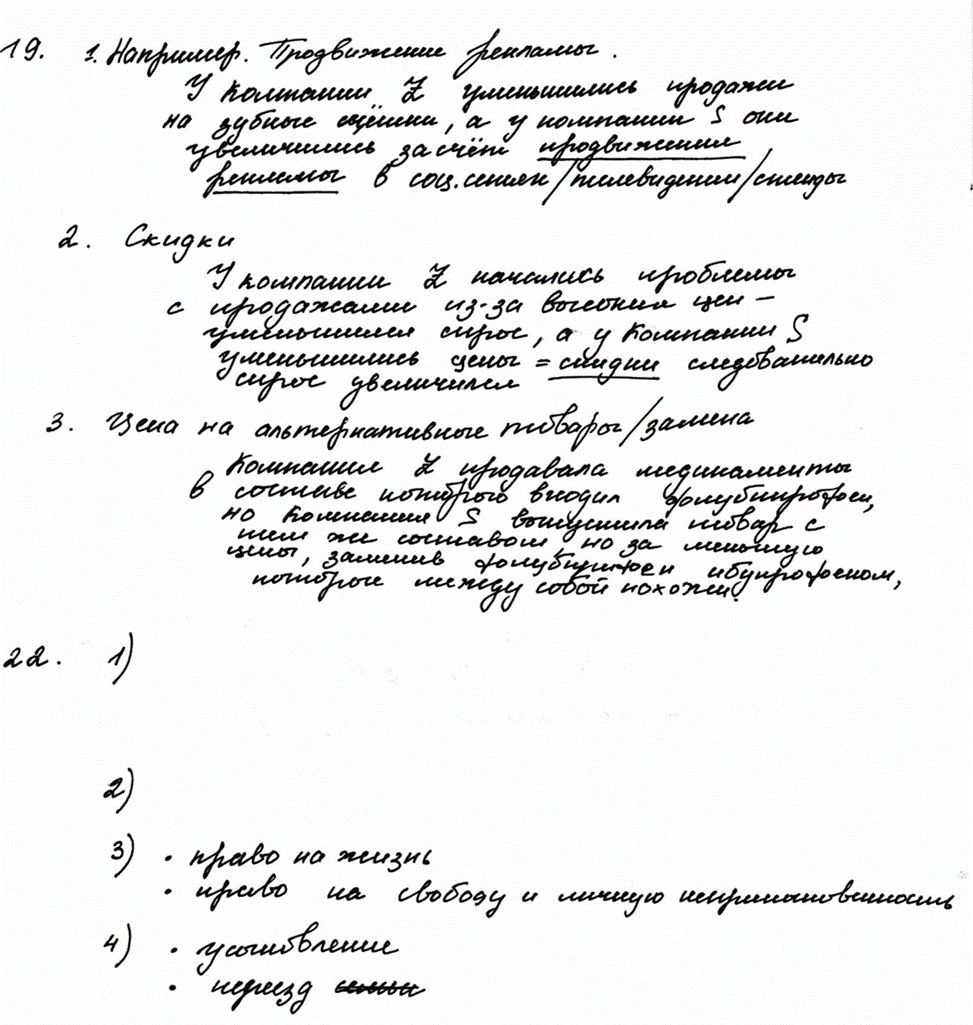 19. 1. Например. Продвижение рекламы.
У компании Z уменьшились продажи
на зубные щётки, а у компании S они
увеличились за счёт продвижения
рекламы в соц.сетях/телевидении/стенды
2. Скидки
У компании Z начались проблемы
с продажами из-за высоких цен –
уменьшился спрос, а у компании S
уменьшились цены = скидки следовательно
спрос увеличился
3. Цена на альтернативные товары/замена
Компания Z продавала медикаменты
в составе которого входил
но Компания S выпустила товар с
тем же составом но за меньшую
цены, заменив ибупрофеном,
которые между собой похожи.
22. 1)
2)
3) • право на жизнь
• право на свободу и личную неприкосновенность
4) • усыновление
• переезд